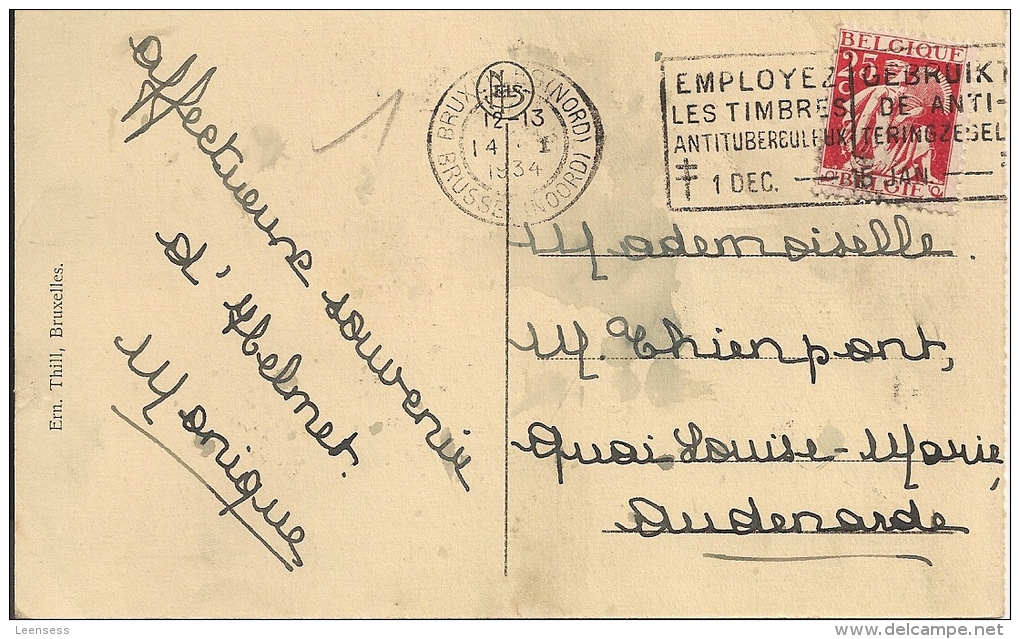 affectueux souvenir
d'Helmet.
Monique
Ern. Thill, Bruxelles.
NELS
BRUXELLES (NORD)
12-13
14 · I
1934
BRUSSEL (NOORD)
EMPLOYEZ
LES TIMBRES
ANTITUBERCULEUX
1 DEC. — 15 JAN.
GEBRUIKT
DE ANTI-
TERINGZEGEL
BELGIQUE
25c
BELGIE
Mademoiselle.
M. Thienpont,
Quai Louise-Marie,
Audenarde
Leensess